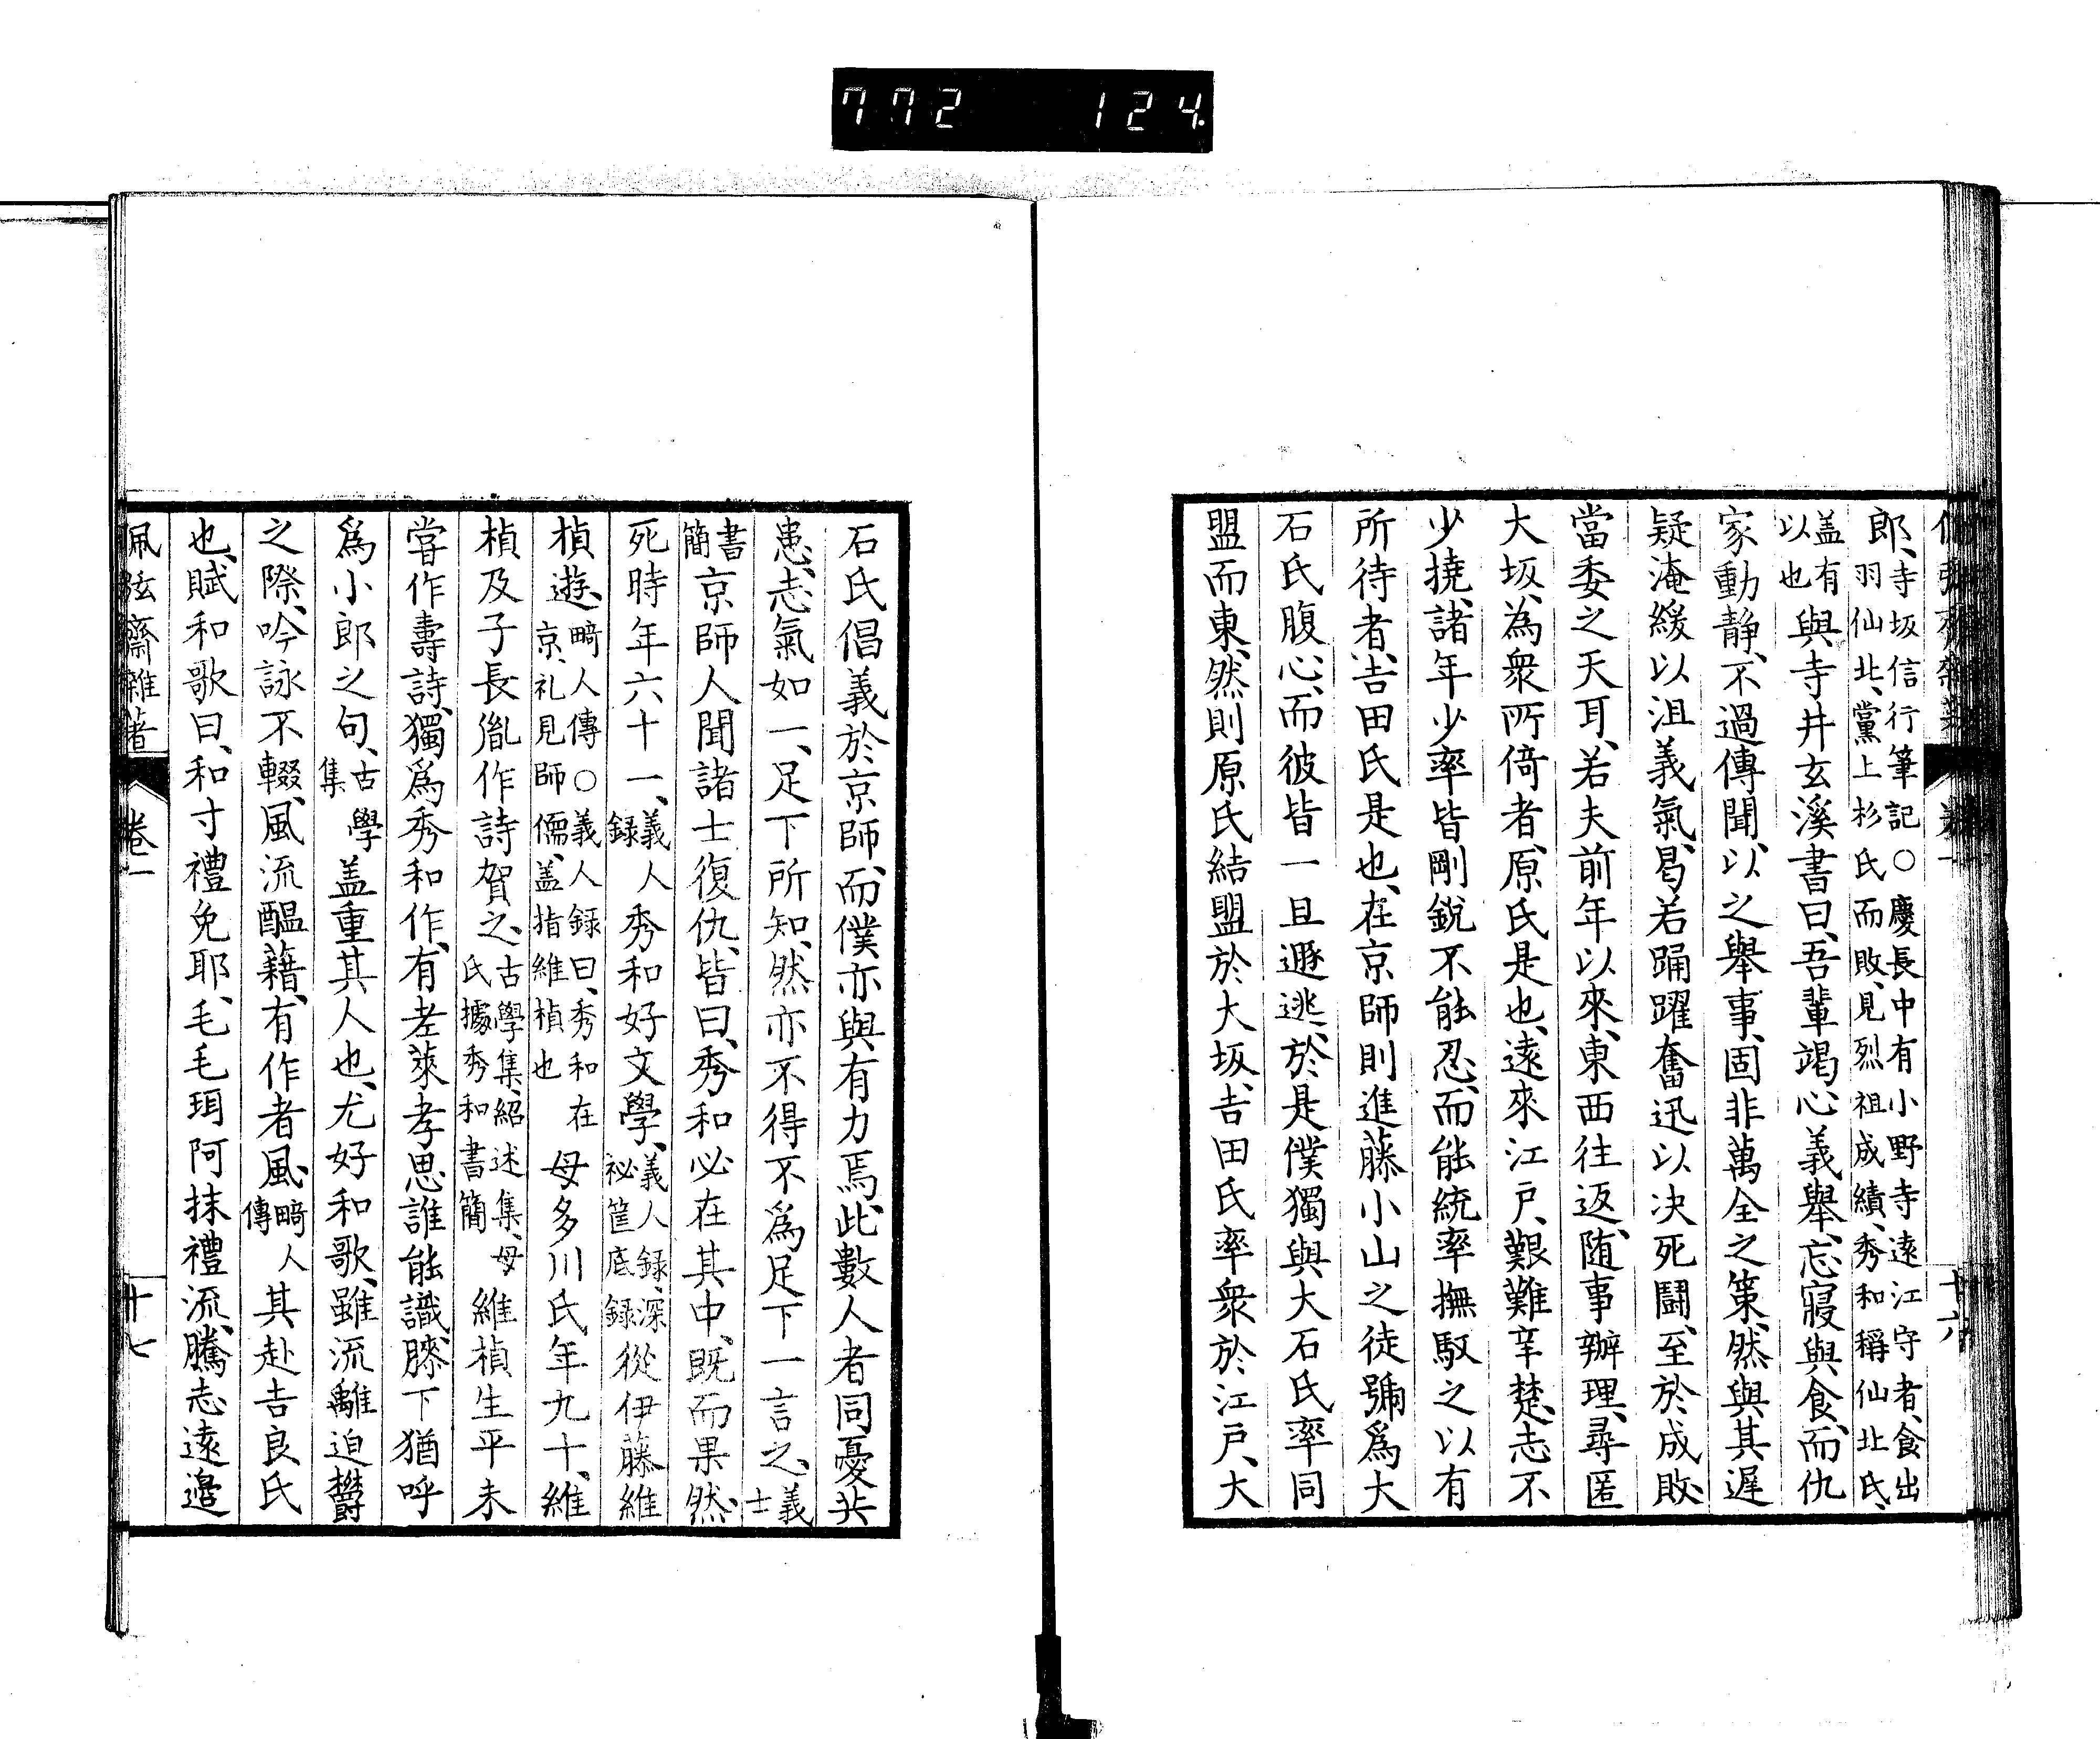 772 124
郎、寺坂信行筆記○慶長中有小野寺遠江守者、食出
羽仙北、黨上杉氏而敗、見烈祖成績、秀和稱仙北氏、
盖有
以也
與寺井玄溪書曰、吾輩竭心義舉、忘寢與食、而仇
家動静、不過傳聞、以之舉事、固非萬全之策、然與其遲
疑淹緩以沮義氣、曷若踊躍奮迅以决死鬪、至於成敗、
當委之天耳、若夫前年以來、東西往返、随事辦理、尋匿
大坂、為衆所倚者、原氏是也、遠來江戸、艱難辛楚、志不
少撓、諸年少率皆剛鋭不能忍、而能統率撫馭之以有
所待者、吉田氏是也、在京師則進藤小山之徒號爲大
石氏腹心、而彼皆一旦遯逃、於是僕獨與大石氏率同
盟而東、然則原氏結盟於大坂、吉田氏率衆於江戸、大
十六
石氏倡義於京師、而僕亦與有力焉、此數人者同憂共
患、志氣如一、足下所知、然亦不得不爲足下一言之、義
士
書
簡
京師人聞諸士復仇、皆曰、秀和必在其中、既而果然、
死時年六十一、義人
録
秀和好文學、義人録、深
祕筐底録
從伊藤維
楨遊、畸人傳○義人録曰、秀和在
京、礼見師儒、盖指維楨也
母多川氏年九十、維
楨及子長胤作詩賀之、古學集、紹述集、母
氏據秀和書簡
維楨生平未
甞作壽詩、獨爲秀和作、有老萊孝思誰能識、膝下猶呼
爲小郎之句、古學
集
盖重其人也、尤好和歌、雖流離迫欝
之際、吟詠不輟、風流醞藉、有作者風、畸人
傳
其赴吉良氏
也、賦和歌曰、和寸禮免耶、毛毛珥阿抹禮流、騰志遠邉
佩弦齋雜著 卷二 十七